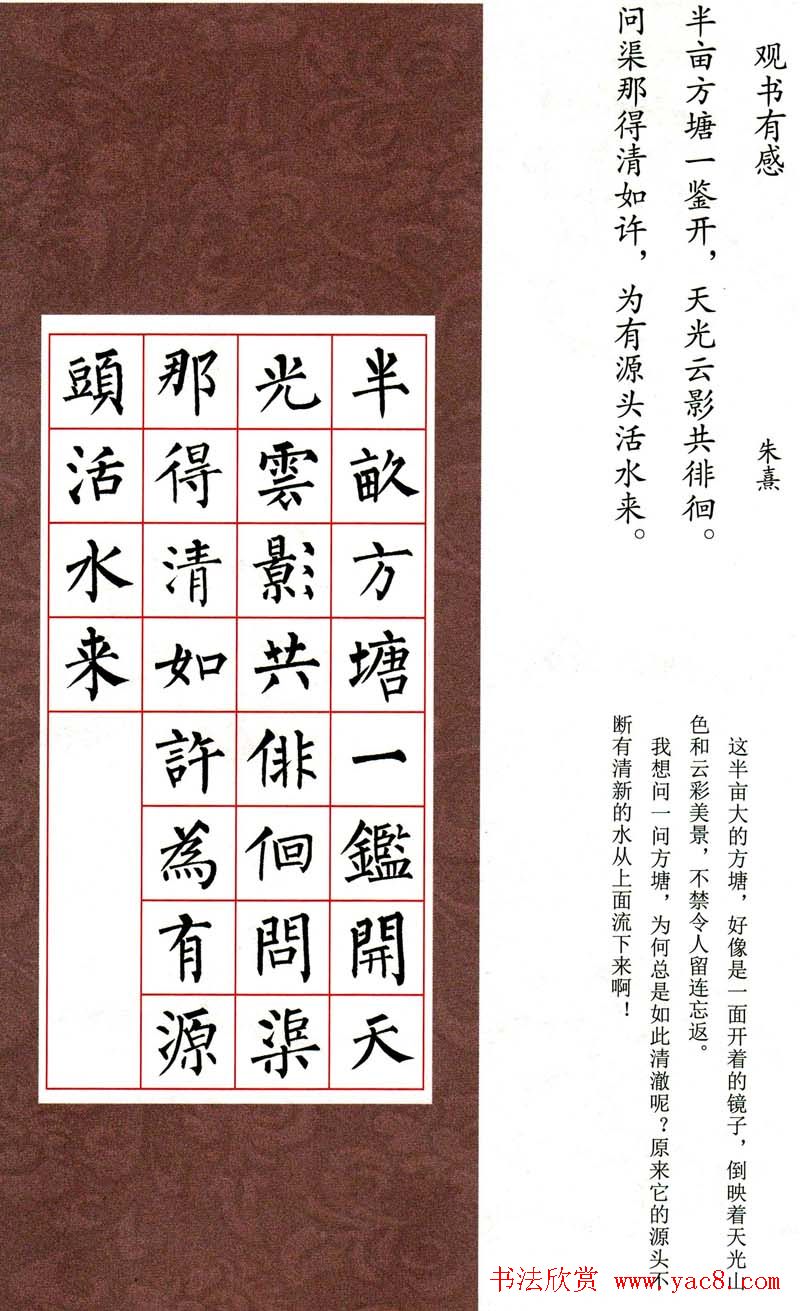 观书有感
朱熹
半亩方塘一鉴开，天光云影共徘徊。
问渠那得清如许，为有源头活水来。
这半亩大的方塘，好像是一面开着的镜子，倒映着天光山
色和云彩美景，不禁令人留连忘返。
我想问一问方塘，为何总是如此清澈呢？原来它的源头不
断有清新的水从上面流下来啊！
半畝方塘一鑑開天
光雲影共俳佪問渠
那得清如許為有源
頭活水来
书法欣赏 www.yac8.com